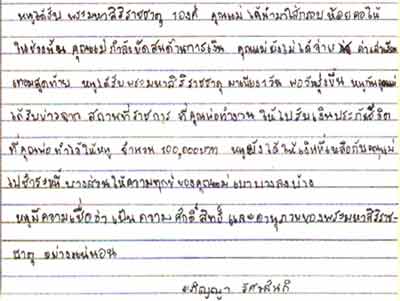 หนูได้รับ พระมหาสิริราชธาตุ 1 องค์ คุณแม่ ได้นำมาใส่กรอบ ห้อยคอให้
ในช่วงนั้น คุณแม่กำลังขัดสนด้านการเงิน คุณแม่ยังไม่ได้จ่าย ค่าเล่าเรียน
เทอมสุดท้าย หนูได้รับพระมหาสิริราชธาตุ มาเพียง 1 วัน พอวันรุ่งขึ้น หนูกับคุณแม่
ได้รับข่าวจาก สถานที่ราชการ ที่คุณพ่อทำงาน ให้ไปรับเงินประกันชีวิต
ที่คุณพ่อ ทำไว้ให้หนู จำนวน 100,000บาท หนูยังได้ให้เงินที่เหลือกับคุณแม่
ไปชำระหนี้ บางส่วน ให้ความทุกข์ของคุณแม่เบาบางลงบ้าง
หนูมีความเชื่อว่า เป็นความศักดิ์สิทธิ์ และอานุภาพของพระมหาสิริราช-
ธาตุ อย่างแน่นอน